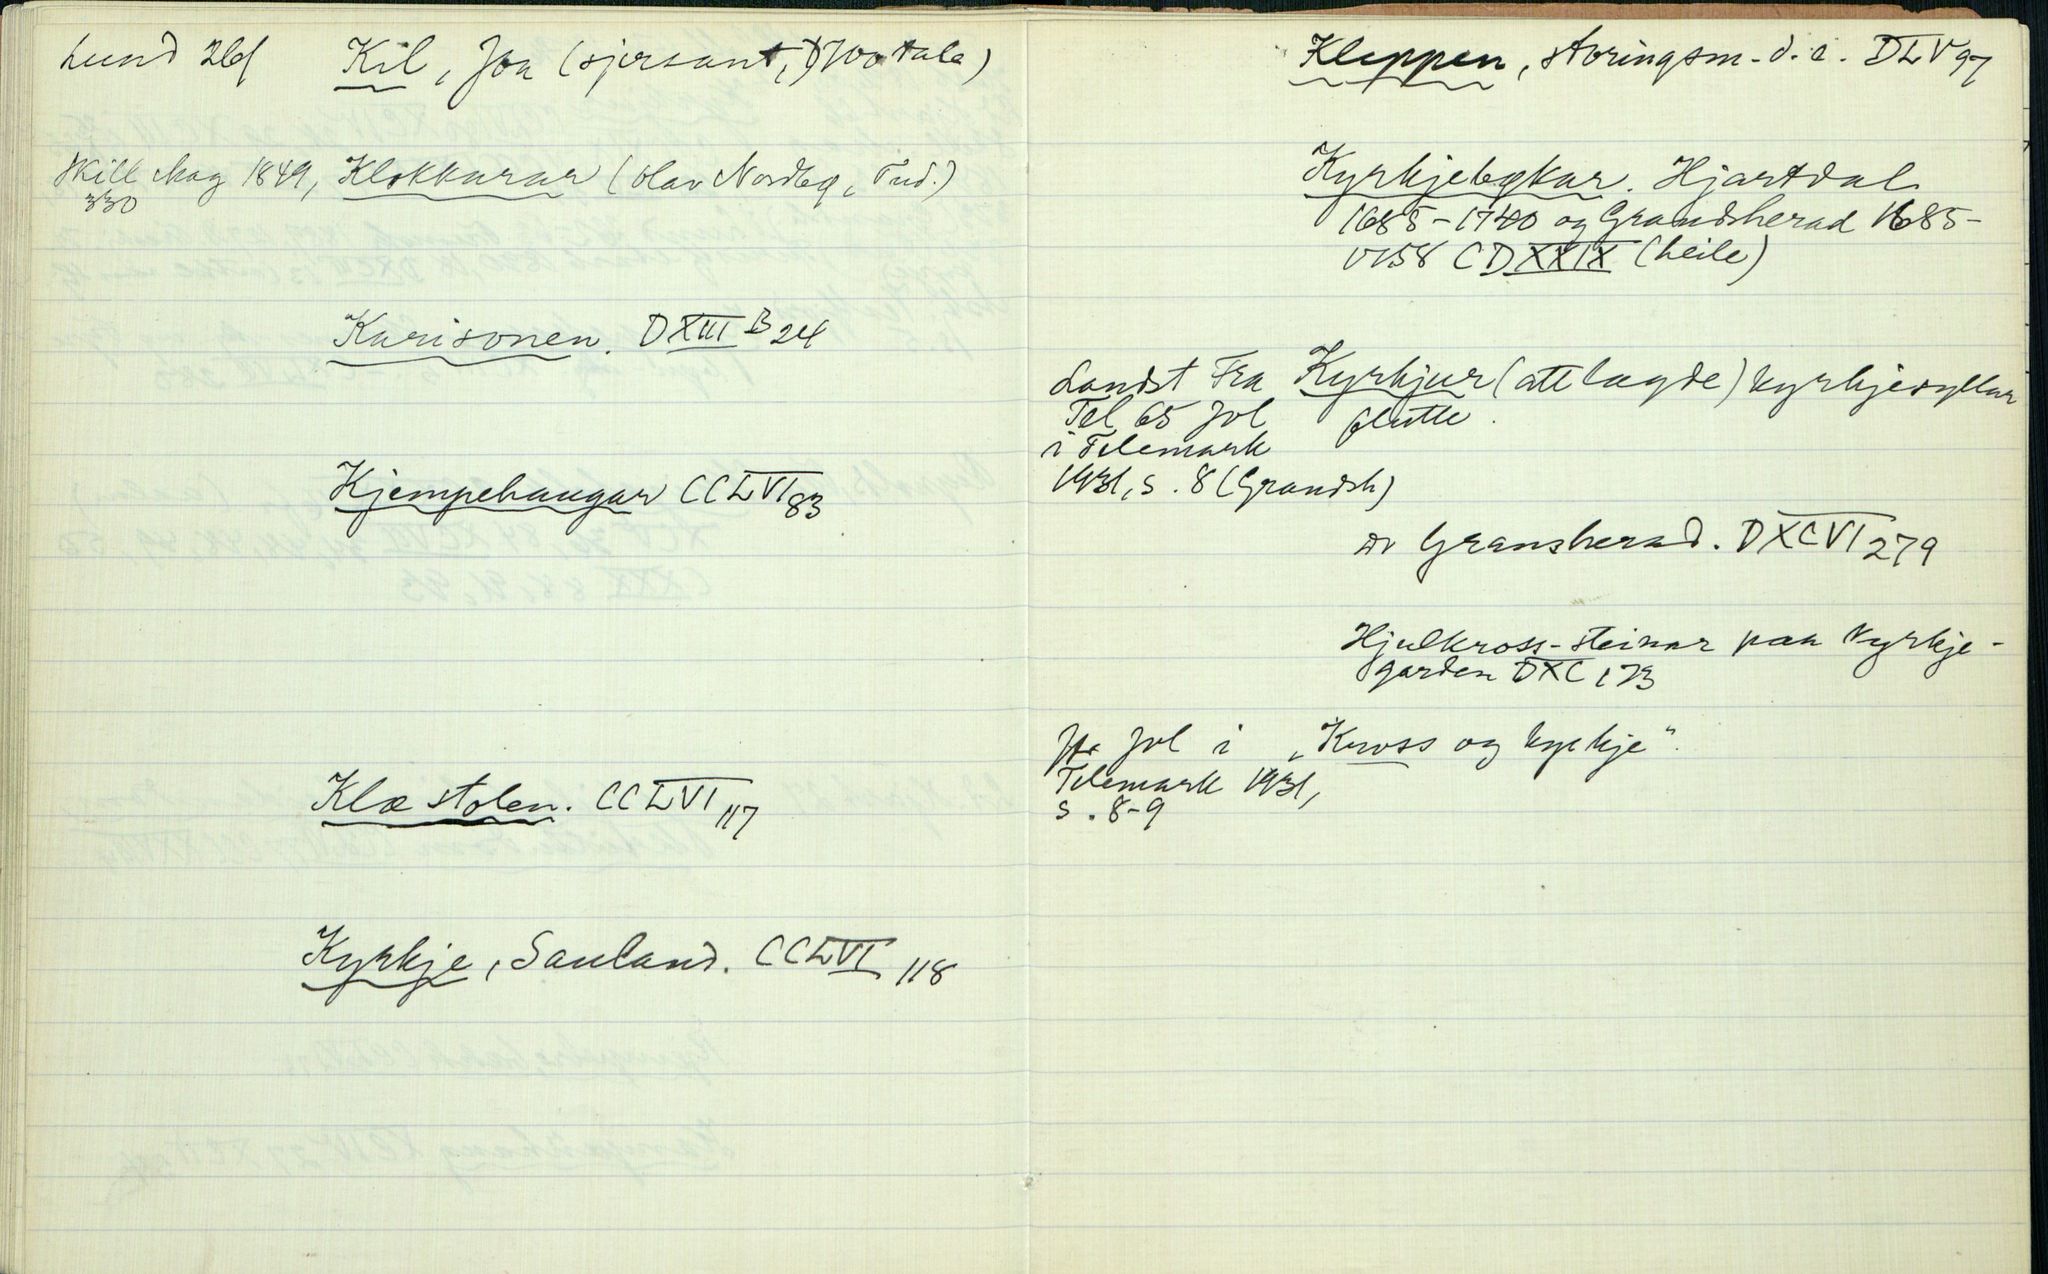 Lund 261 Kil, Jon (sjersant,
Skill Mag 1849, Klokkarar (Olav Nordbø, Tud.)
330
Karisonen. DXIII B 24
Kjempehaugar CCLVI 83
Klæstolen. CCLVI 117
Kyrkje, Sauland. CCLVI 118
Kleppen, storingsm. d. e. DLV 97
Kyrkjebøkar. Hjartdal
1685-1740 og Grandsherad 1685-
1758 CDXXIX (heile)
Landst Fra Kyrkjur (attlagde) kyrkjesyllar
Tel 65 Jol flutte.
i Telemark
1931, s. 8 (Grandsh)
Gransherad. DXCVI 279
Hjulkross-steinar paa kyrkje-
garden DXC 173
Jfr Jol i „Kross og kyrkje“.
Telemark 1931,
s. 8-9